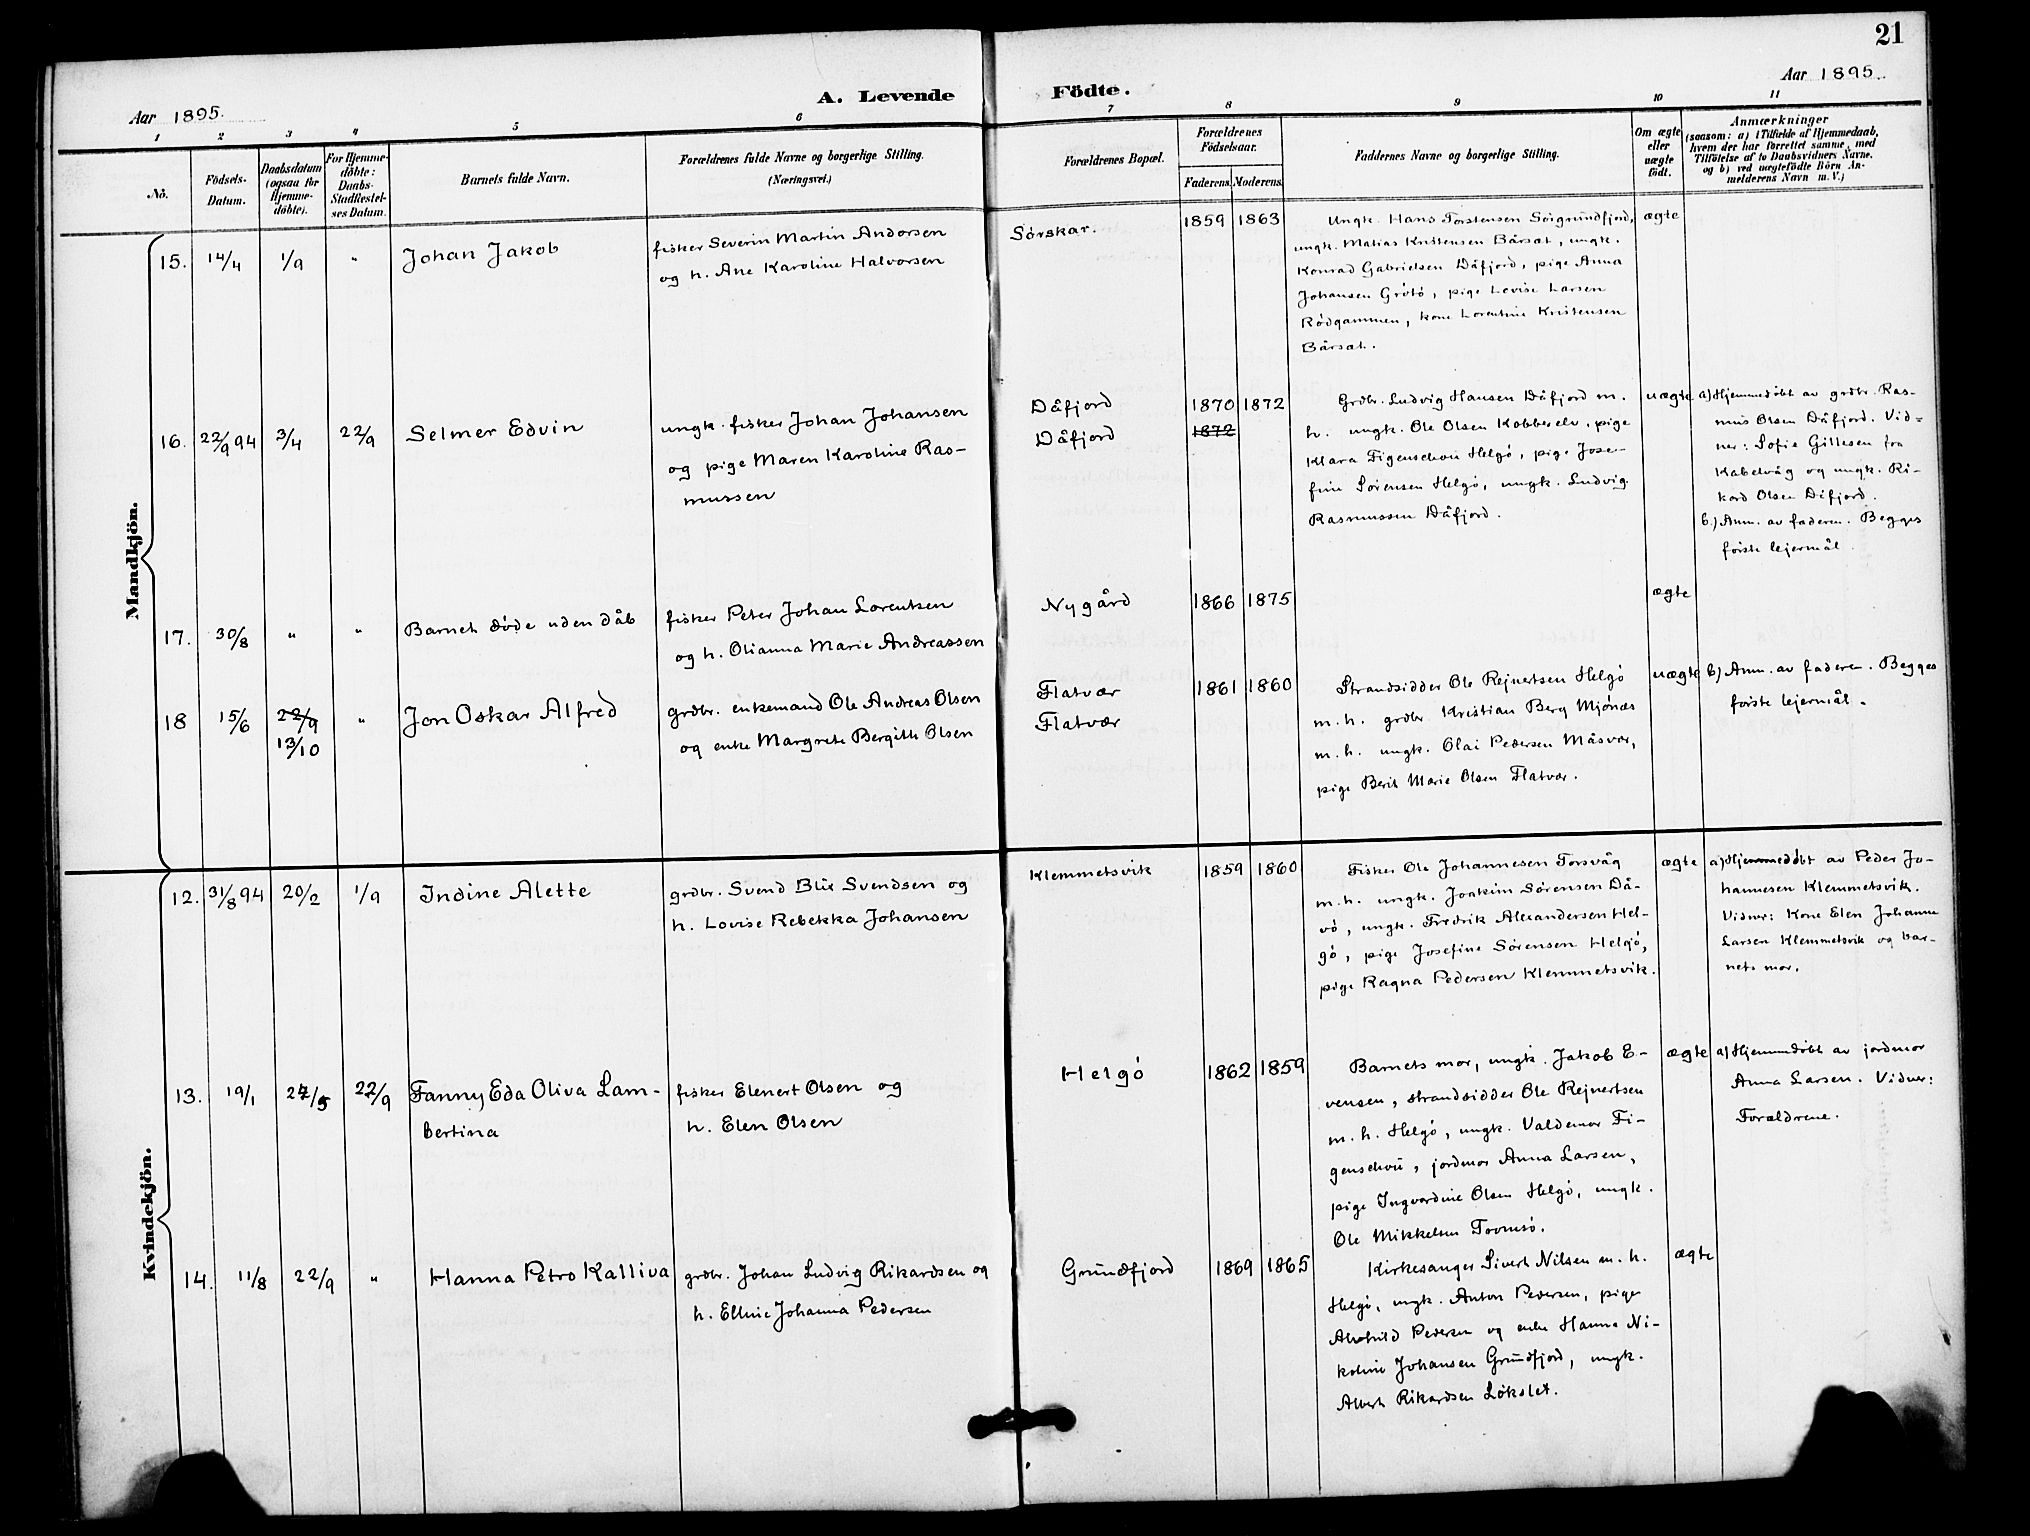 21
Aar 1895.
A. Levende
Födte.
Aar 1895.
1 2 3 4 5 6 7 8 9 10 11
No.
Födsels-
Datum.
Daabsdatum
(ogsaa for
Hjemme-
døbte).
For Hjemme-
døbte:
Daabs-
Stadfestel-
ses Datum.
Barnets fulde Navn.
Forældrenes fulde Navne og borgerlige Stilling.
(Næringsvei.)
Forældrenes Bopæl.
Forældrenes
Födselsaar.
Faderens. Moderens.
Faddernes Navne og borgerlige Stilling.
Om ægte
eller
uægte
födt.
Anmærkninger
(saasom: a) i Tilfælde af Hjemmedaab,
hvem der har forrettet samme, med
Tilføielse af to Daabsvidners Navne.
og b) ved uægtefödte Börn An-
melderens Navn m. V.)
Mandkjön.
15. 14/4 1/9 " Johan Jakob
fisker Severin Martin Andorsen
og h. Ane Karoline Halvorsen
Sörskar.
1859 1863
Ungk. Hans Torstensen Sörgrundfjord,
ungk. Matias Kristensen Bårset, ungk.
Konrad Gabrielsen Dåfjord, pige Anna
Johansen Grötö, pige Lovise Larsen
Rödgammen, kone Lorentine Kristensen
Bårset.
ægte
16. 22/9 94 3/4 22/9 Selmer Edvin
ungk. fisker Johan Johansen
og pige Maren Karoline Ras-
mussen
Dåfjord
Dåfjord
1870 1872
1872
Grdbr. Ludvig Hansen Dåfjord m.
h. ungk. Ole Olsen Kobberelv, pige
Klara Figenschou Helgö, pige Jose-
fine Sörensen Helgö, ungk. Ludvig
Rasmussen Dåfjord.
uægte
a) Hjemmedöbt av grdbr. Ras-
mus Olsen Dåfjord. Vid-
ner: Sofie Gillesen fra
Kabelvåg og ungk. Ri-
kard Olsen Dåfjord.
b.) Anm. av faderen. Begges
förste lejermål.
17. 30/8 " " Barnet döde uden dåb
fisker Peter Johan Lorentsen
og h. Olianna Marie Andreassen
Nygård
1866 1875
ægte
18 15/6 22/9 " Jon Oskar Alfred
13/10
grdbr. enkemand Ole Andreas Olsen
og enke Margrete Bergitte Olsen
Flatvær
Flatvær
1861 1860
Strandsidder Ole Rejnertsen Helgö
m. h. grdbr Kristian Berg Mjönes
m. h. ungk. Olai Pedersen Måsvær,
pige Berit Marie Olsen Flatvær.
uægte
b) Anm. av faderen. Begges
förste lejermål.
Kvindekjön.
12. 31/8 94 20/2 1/9 Indine Alette
grdbr. Svend Blix Svendsen og
h. Lovise Rebekka Johansen
Klemmetsvik
1859 1860
Fisker Ole Johannesen Torsvåg
m. h. ungk. Joakim Sörensen Då-
vö, ungk. Fredrik Alexandersen Hel-
gö, pige Josefine Sörensen Helgö,
pige Ragna Pedersen Klemmetsvik.
ægte
a) Hjemmedöbt av Peder Jo-
hannesen Klemmetsvik.
Vidner: Kone Elen Johanna
Larsen Klemmetsvik og bar-
nets mor.
13. 19/1 27/5 22/9 Fanny Eda Oliva Lam-
bertina
fisker Elenert Olsen og
h. Elen Olsen
Helgö
1862 1859
Barnets mor, ungk. Jakob E-
vensen, strandsidder Ole Rejnertsen
m. h. Helgö, ungk. Valdemar Fi-
genschou, jordmor Anna Larsen,
pige Ingvardine Olsen Helgö, ungk.
Ole Mikkelsen Tromsö.
ægte
a) Hjemmedöbt av jordmor
Anna Larsen. Vidner:
Forældrene.
14. 11/8 22/9 " Hanna Petro Kalliva
grdbr. Johan Ludvig Rikardsen og
h. Elline Johanna Pedersen
Grundfjord
1869 1865
Kirkesanger Sivert Nilsen m. h.
Helgö, ungk. Anton Pedersen, pige
Alvhild Pedersen og enke Hanna Ni-
koline Johansen Grundfjord, ungk.
Albert Rikardsen Lökslet.
ægte